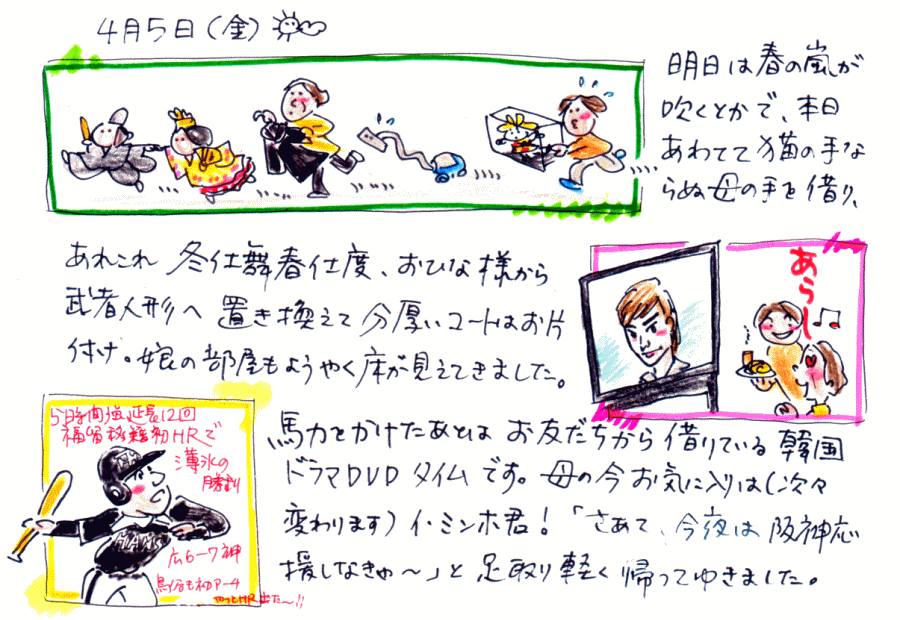 4月5日(金)
明日は春の嵐が
吹くとかで、本日
あわてて猫の手な
らぬ母の手を借り、
あれこれ 冬仕舞春仕度、おひな様から
武者人形へ 置き換えて 分厚いコートはお片
付け。娘の部屋もようやく床が見えてきました。
あらし
5時間強、延長12回
福留移籍初HRで
薄氷の
勝利
HANS
広6-7神
鳥谷も初アーチ
やっとHR出た〜!!
馬力をかけたあとは お友だちから 借りている 韓国
ドラマDVD タイムです。母の今お気に入りは(次々
変わります)イ・ミンホ君!「さあて、今夜は 阪神応
援しなきゃ〜」と 足取り軽く 帰ってゆきました。